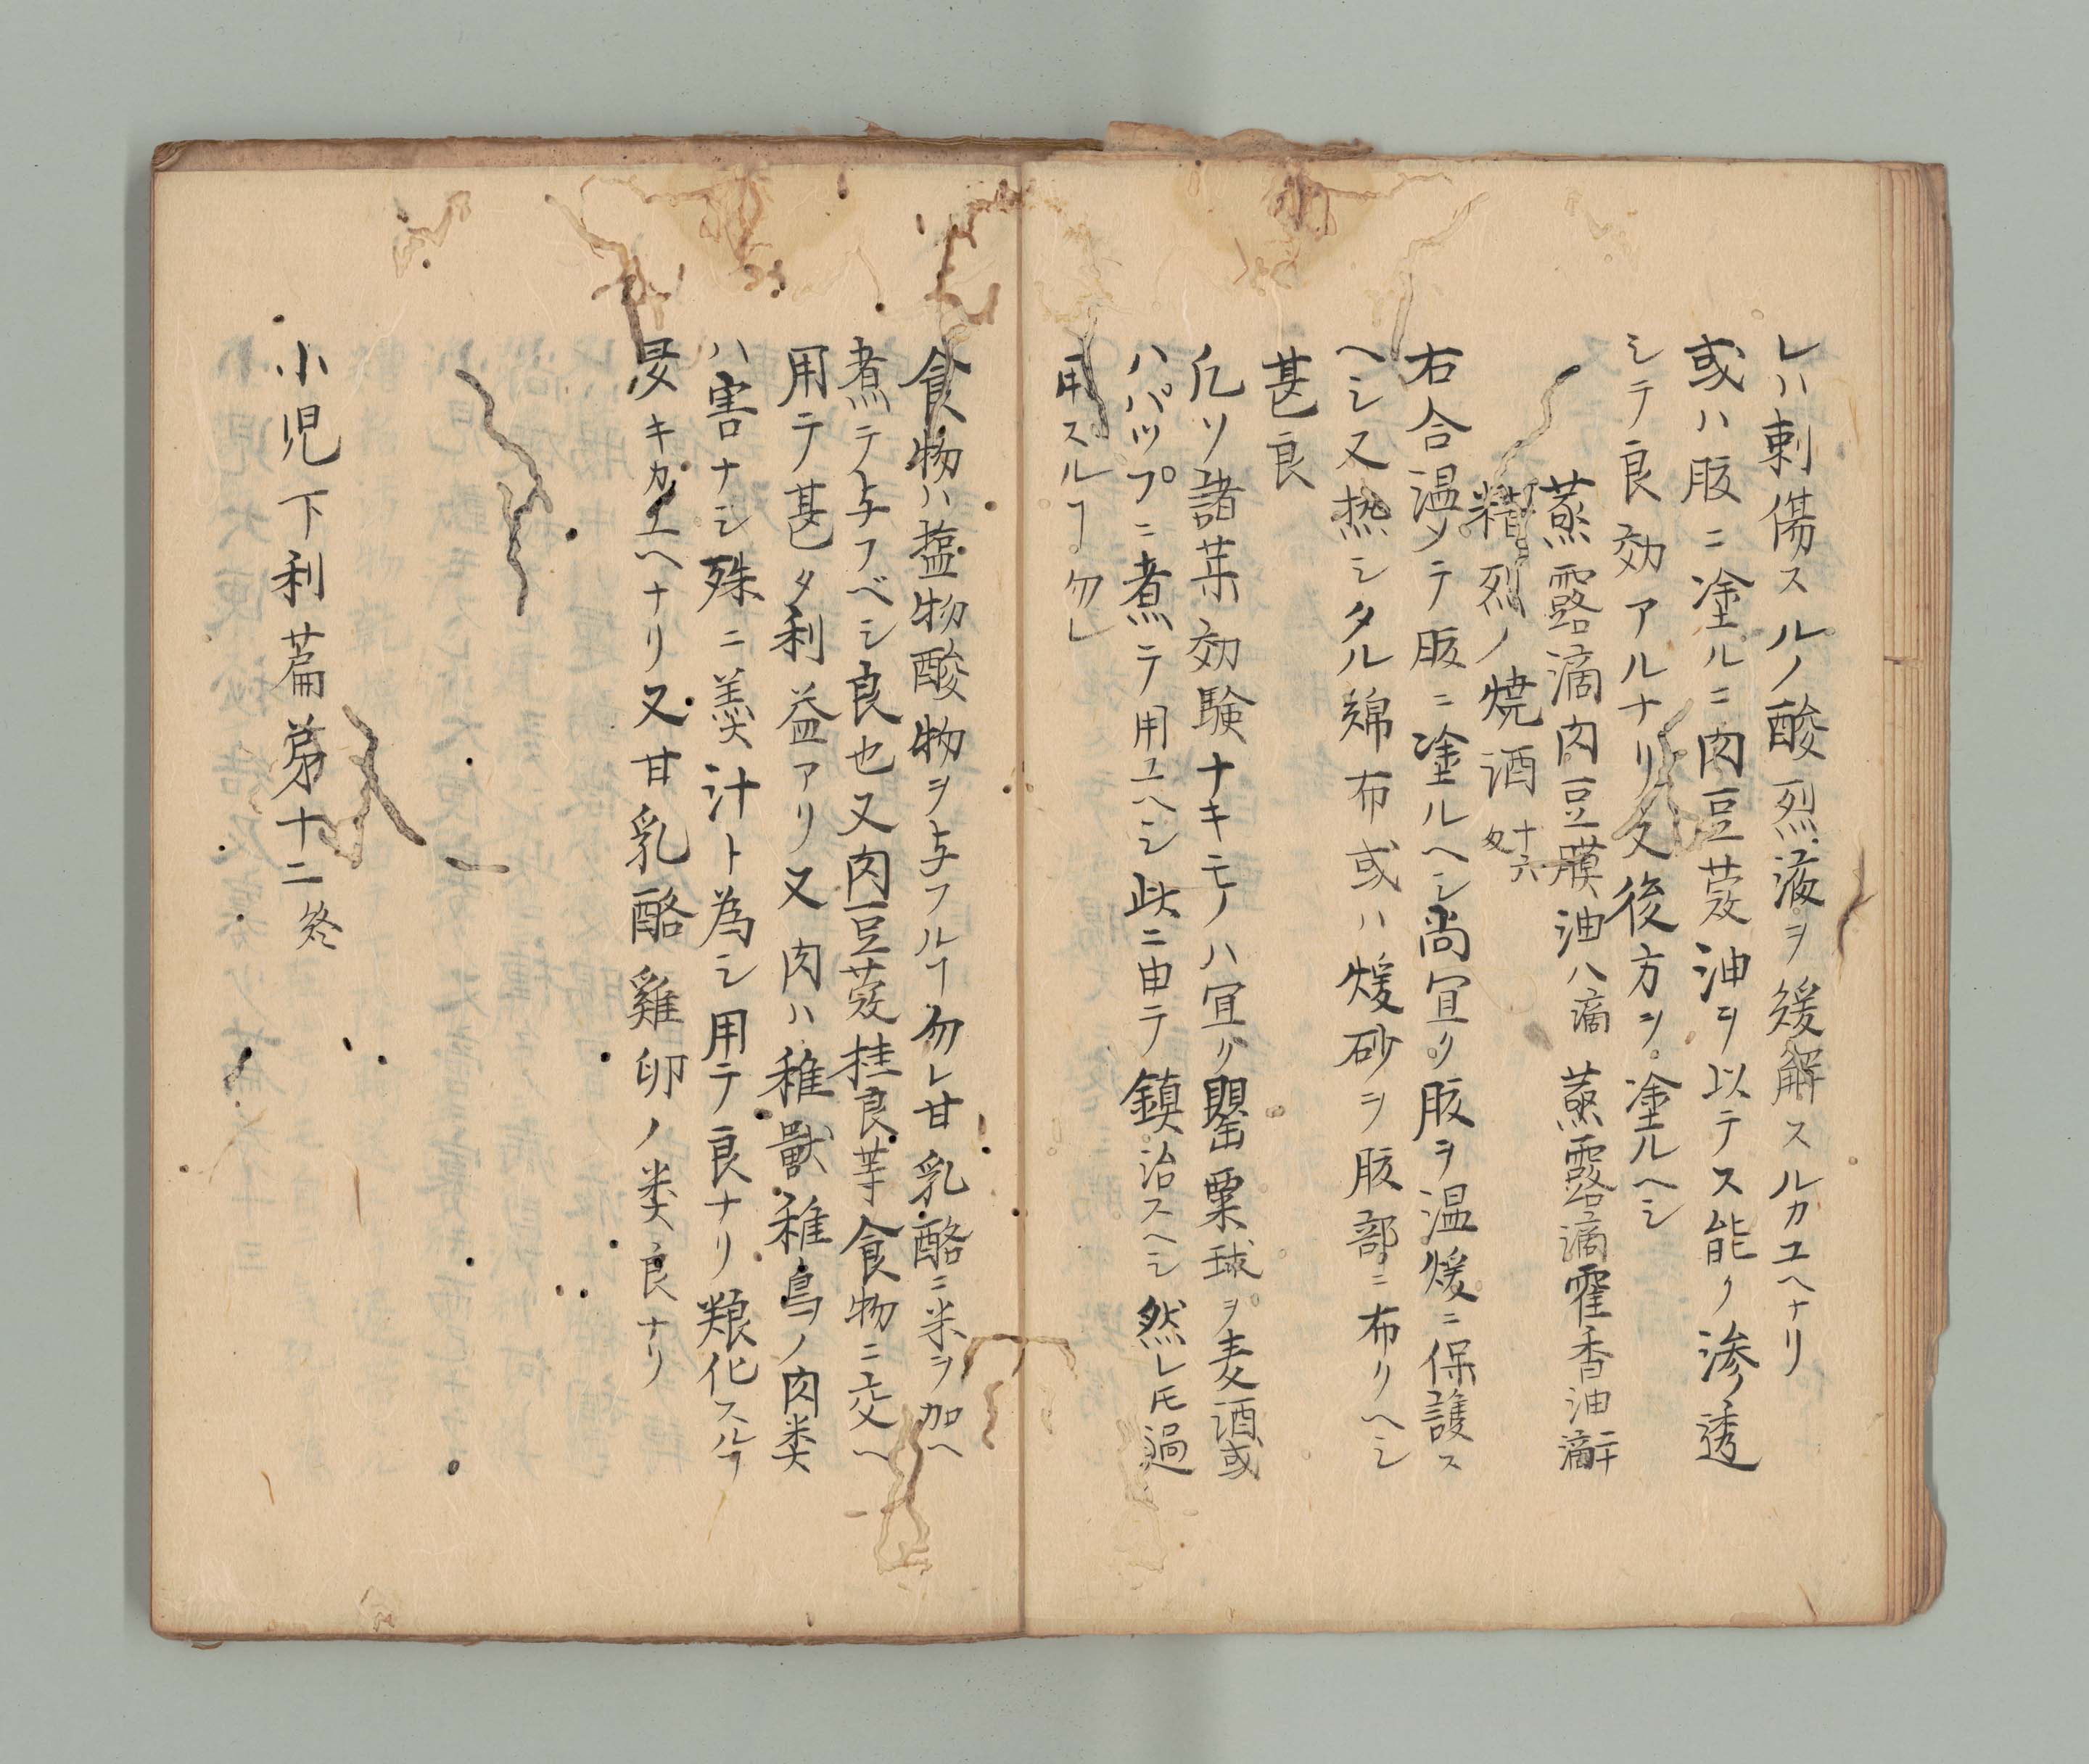 レハ刺傷スルノ酸烈液ヲ緩解スルカユヘナリ
或ハ腹ニ塗ルニ肉豆蔻油ヲ以テス能ク渗透
シテ良効アルナリ又後方ヲ塗ルヘシ
蒸露滴肉豆蔻油八滴 蒸露滴霍香油二十滴
精烈ノ焼酒十六
右合温メテ腹ニ塗ルヘシ尚宜ク腹ヲ温煖ニ保護ス
ヘシ又热シタル綿布或ハ煖砂ヲ腹部ニ布クヘシ
甚良
凡ソ諸薬効験ナキモノハ宜ク罌粟球ヲ麦酒或
ハパップニ煮テ用ユヘシ此ニ由テ鎮治スヘシ然レ𪜈過
用スルヿ勿レ
食物ハ塩物酸物ヲ与フルヿ勿レ甘乳酪ニ米ヲ加ヘ
煮テ与フベシ良也又肉豆蔻桂良芋食物ニ交ヘ
用テ甚タ利益アリ又肉ハ稚獣稚鳥ノ肉类
ハ害ナシ殊ニ羹汁ト為シ用テ良ナリ粮化スルヿ
旻キカユヘナリ又甘乳酪雞卵ノ类良ナリ
小児下利篇第十二終